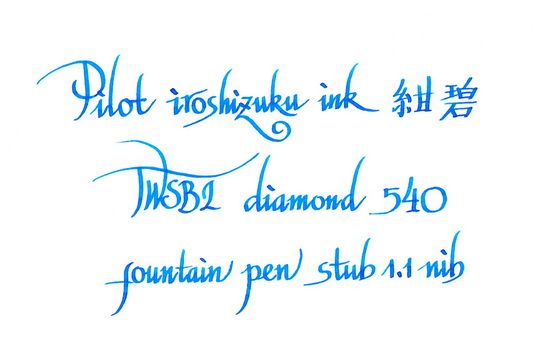 Pilot iroshizuku ink 紺碧
TWSB2 diamond 540
fountain pen stub 1.1 nib